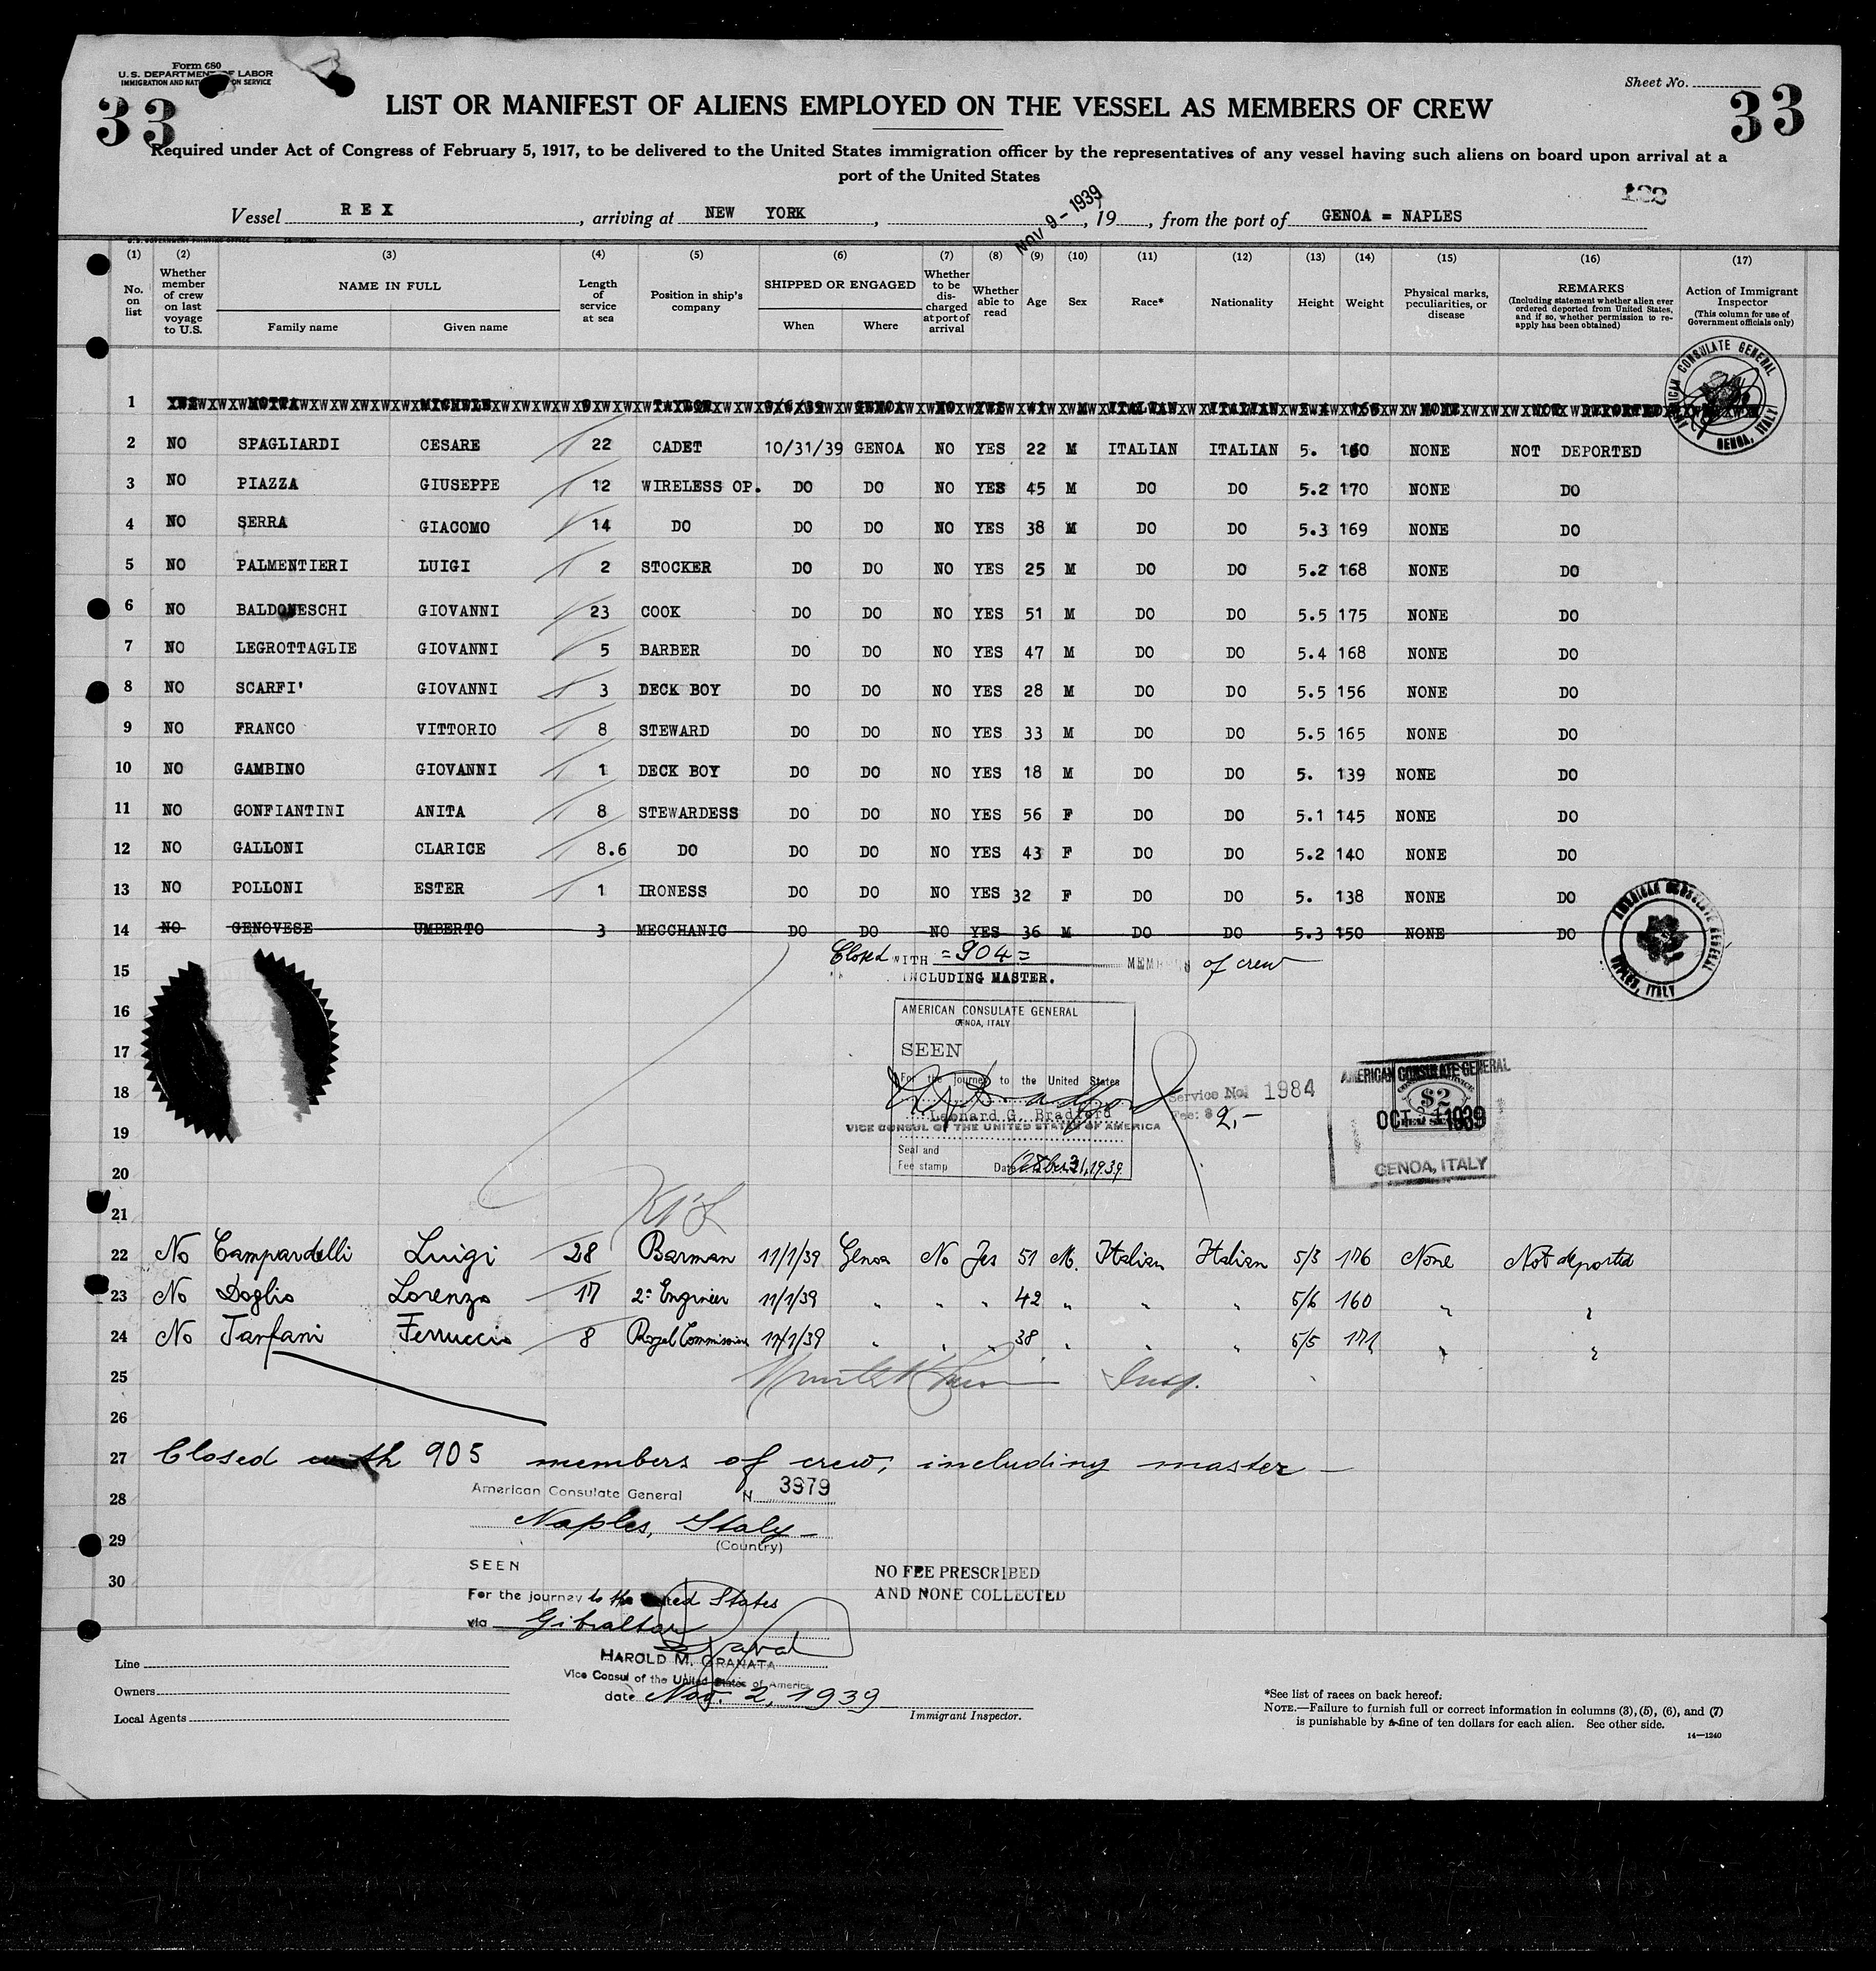 Form 680
U. S. DEPARTMENT OF LABOR
IMMIGRATION AND NATURALIZATION SERVICE
Sheet No.
33
33
LIST OR MANIFEST OF ALIENS EMPLOYED ON THE VESSEL AS MEMBERS OF CREW
Required under Act of Congress of February 5, 1917, to be delivered to the United States immigration officer by the representatives of any vessel having such aliens on board upon arrival at a
port of the United States
Vessel REX, arriving at NEW YORK, NOV 9 - 1939, 19, from the port of GENOA = NAPLES
(1) (2) (3) (4) (5) (6) (7) (8) (9) (10) (11) (12) (13) (14) (15) (16) (17)
No. on list
Whether member of crew on last voyage to U.S.
NAME IN FULL
Family name Given name
Length of service at sea
Position in ship's company
SHIPPED OR ENGAGED
When Where
Whether to be discharged at port of arrival
Whether able to read
Age
Sex
Race*
Nationality
Height
Weight
Physical marks, peculiarities, or disease
REMARKS
(Including statement whether alien ever ordered deported from United States, and if so, whether permission to reapply has been obtained)
Action of Immigrant Inspector
(This column for use of Government officials only)
AMERICAN CONSULATE GENERAL GENOA, ITALY
1 MOTTA MICHELE TAYLOR GENOA NO YES M ITALIAN ITALIAN NONE NOT DEPORTED
2 NO SPAGLIARDI CESARE 22 CADET 10/31/39 GENOA NO YES 22 M ITALIAN ITALIAN 5. 160 NONE NOT DEPORTED
3 NO PIAZZA GIUSEPPE 12 WIRELESS OP. DO DO NO YES 45 M DO DO 5.2 170 NONE DO
4 NO SERRA GIACOMO 14 DO DO DO NO YES 38 M DO DO 5.3 169 NONE DO
5 NO PALMENTIERI LUIGI 2 STOCKER DO DO NO YES 25 M DO DO 5.2 168 NONE DO
6 NO BALDONESCHI GIOVANNI 23 COOK DO DO NO YES 51 M DO DO 5.5 175 NONE DO
7 NO LEGROTTAGLIE GIOVANNI 5 BARBER DO DO NO YES 47 M DO DO 5.4 168 NONE DO
8 NO SCARFI' GIOVANNI 3 DECK BOY DO DO NO YES 28 M DO DO 5.5 156 NONE DO
9 NO FRANCO VITTORIO 8 STEWARD DO DO NO YES 33 M DO DO 5.5 165 NONE DO
10 NO GAMBINO GIOVANNI 1 DECK BOY DO DO NO YES 18 M DO DO 5. 139 NONE DO
11 NO GONFIANTINI ANITA 8 STEWARDESS DO DO NO YES 56 F DO DO 5.1 145 NONE DO
12 NO GALLONI CLARICE 8.6 DO DO DO NO YES 43 F DO DO 5.2 140 NONE DO
13 NO POLLONI ESTER 1 IRONESS DO DO NO YES 32 F DO DO 5. 138 NONE DO
14 NO GENOVESE UMBERTO 3 MECCHANIC DO DO NO YES 36 M DO DO 5.3 150 NONE DO
AMERICAN CONSULATE GENERAL NAPLES, ITALY
Closed WITH =904= MEMBERS of crew
15
INCLUDING MASTER.
16
AMERICAN CONSULATE GENERAL
GENOA, ITALY
17
SEEN
For the journey to the United States
18
Leonard G. Bradford
VICE CONSUL OF THE UNITED STATES OF AMERICA
Service No. 1984
Fee: $ 2,-
AMERICAN CONSULATE GENERAL
$2
OCT 31 1939
GENOA, ITALY
19
Seal and
Fee stamp Date October 31, 1939
20
21
22 No Campardelli Luigi 28 Barman 11/1/39 Genoa No Jes 51 M. Italian Italian 5/3 176 None Not deported
23 No Doglio Lorenzo 17 2° Engineer 11/1/39 " " " 42 " " " 5/6 160 " "
24 No Tarfani Ferruccio 8 Royal Commissioner 11/1/39 " " " 38 " " " 5/5 171 " "
25 Insp.
26
27 Closed with 905 members of crew, including master –
American Consulate General N 3979
28
Naples, Italy –
29
(Country)
SEEN
NO FEE PRESCRIBED
30
For the journey to the United States
AND NONE COLLECTED
via Gibraltar
HAROLD M. GRANATA
Vice Consul of the United States of America
date Nov. 2, 1939
Immigrant Inspector.
Line
Owners
Local Agents
*See list of races on back hereof.
NOTE.—Failure to furnish full or correct information in columns (3), (5), (6), and (7)
is punishable by a fine of ten dollars for each alien. See other side.
14—1240